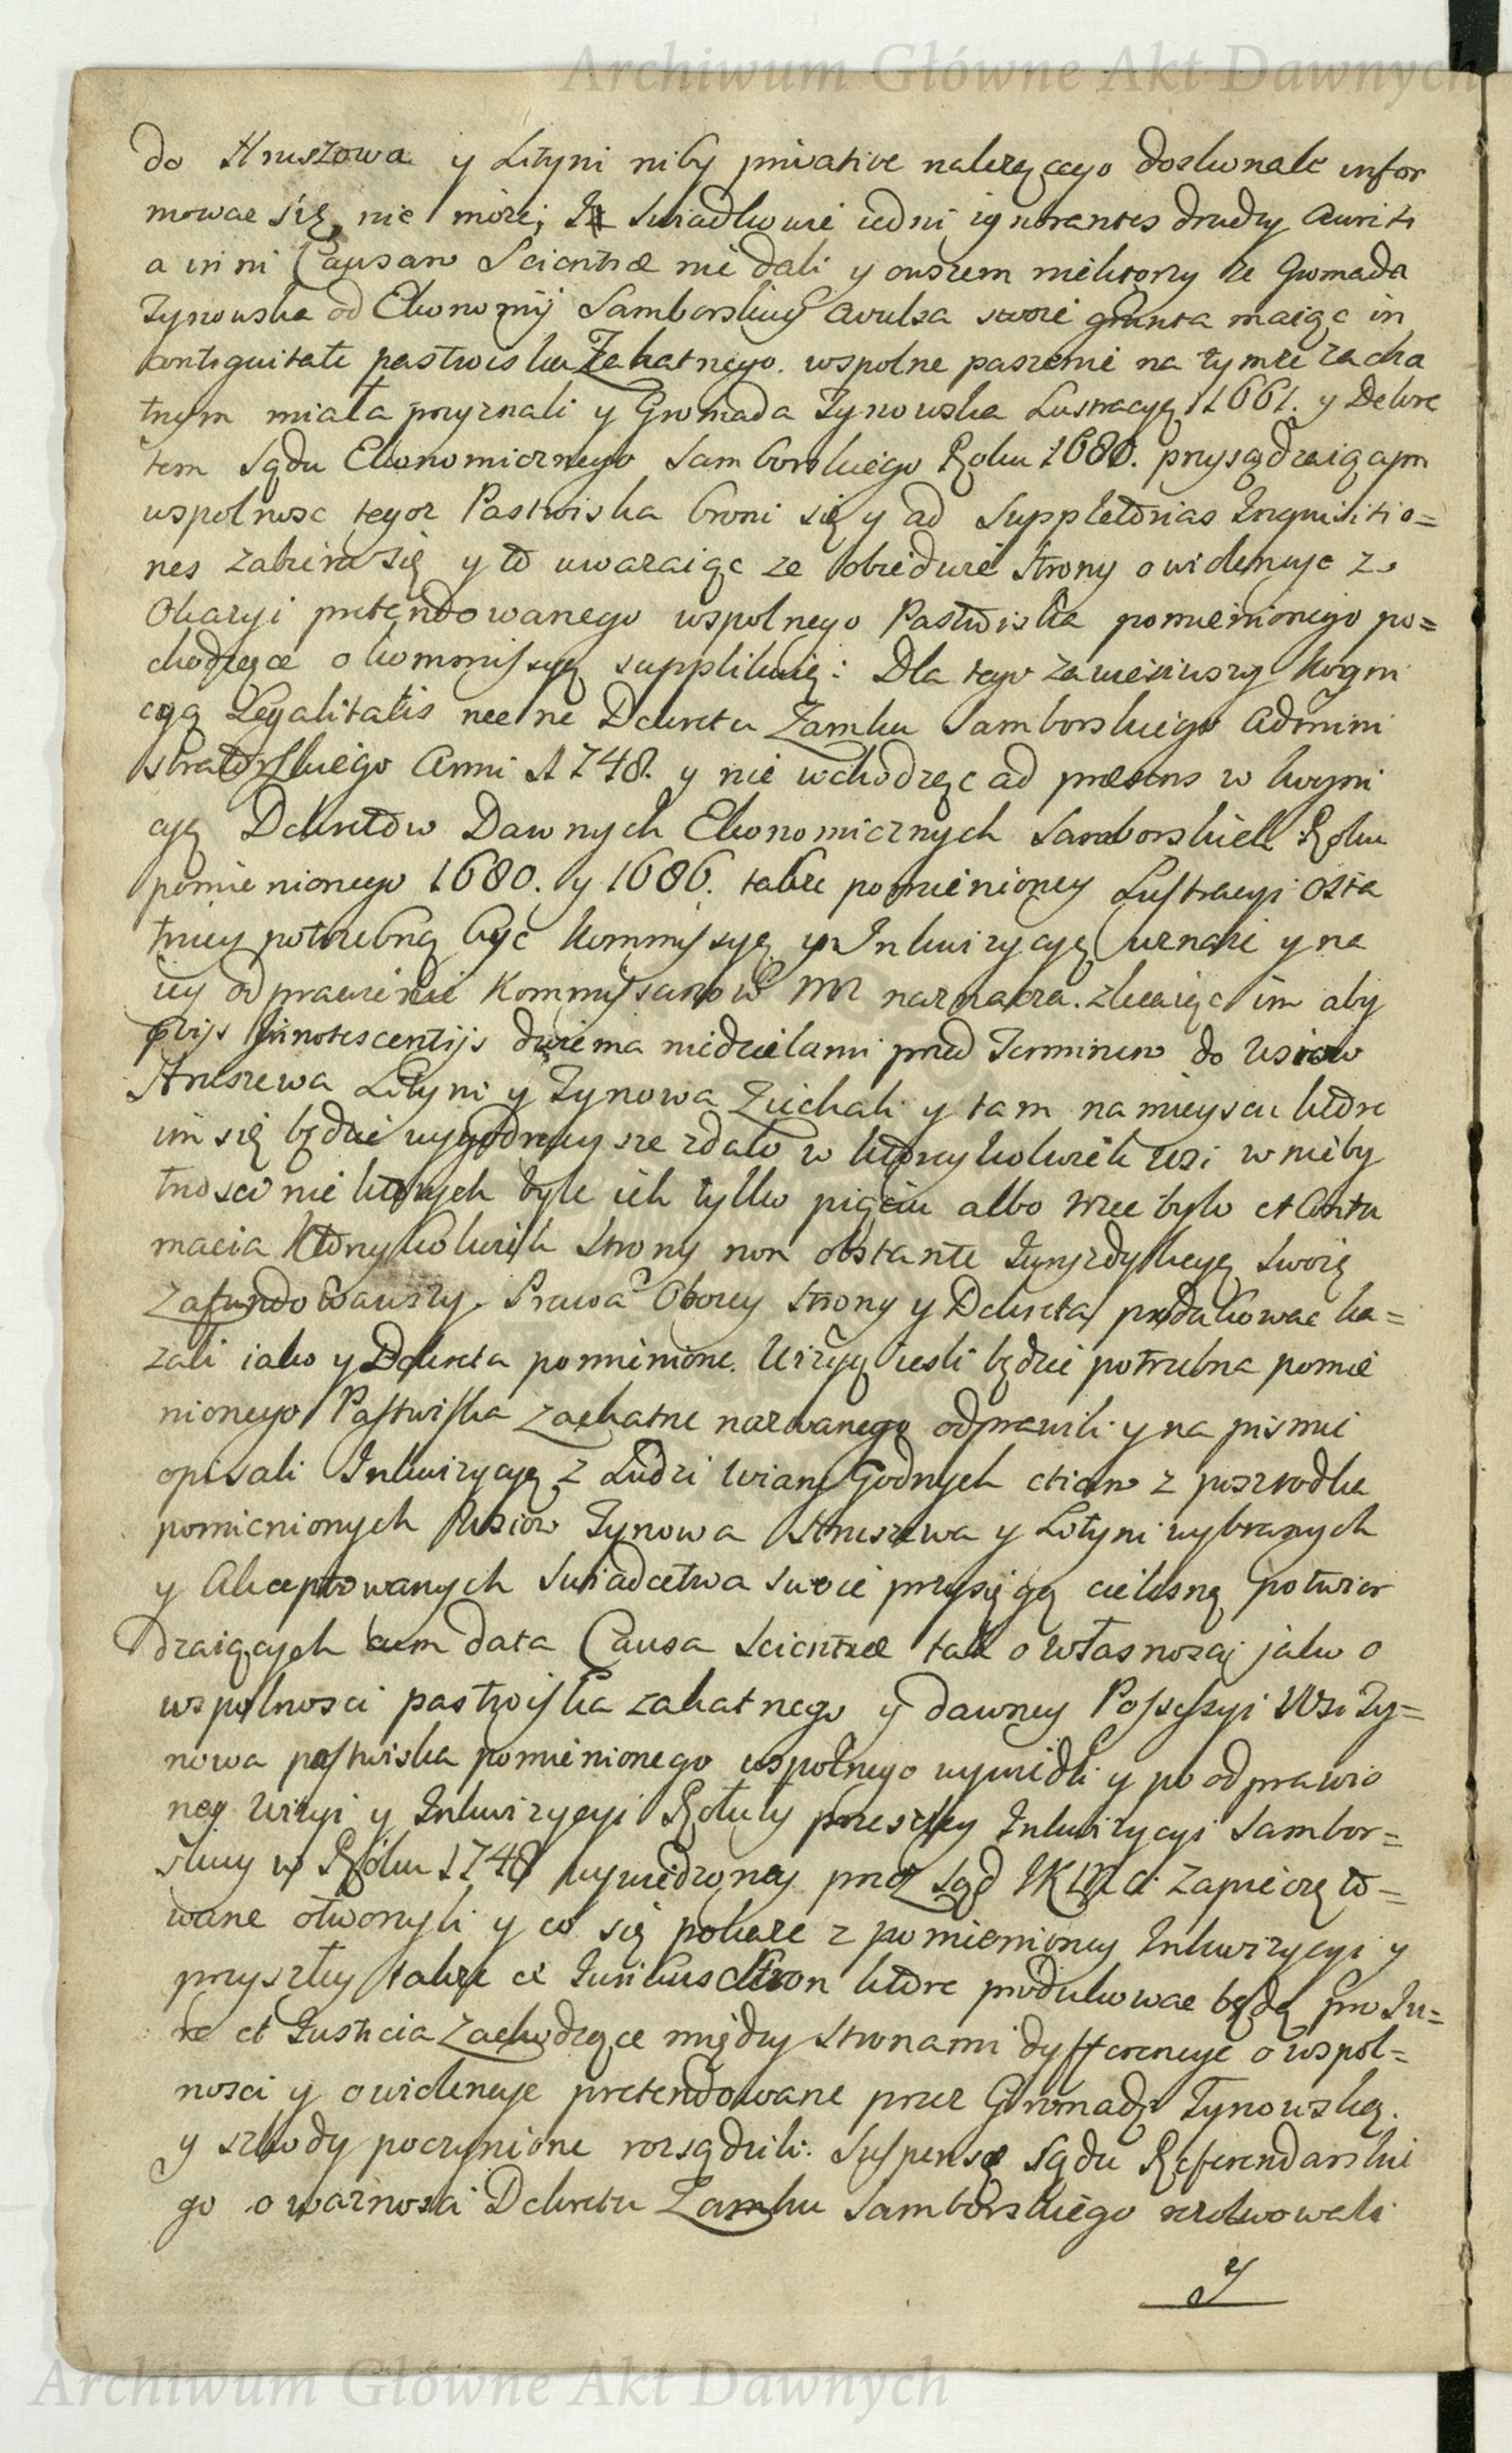 Archiwum Główne Akt Dawnych
do Hruszowa y Lityni niby privative należącego doskonale infor
mowac się, nie może, Iż swiadkowie iedni ignorantes drudzy auriti
a inni Causam Scientiæ nie dali y owszem niektorzy że Gromada
Tynowska od Ekonomij Samborskiey avulsa swoie grunta maiąc in
contiguitate pastwiska Zakatnego. wspolne paszenie na tymże zaka
tnym miała przyznali y Gromada Tynowska Lustracyą 1661. y Dekre
tem Sądu Ekonomicznego Samborskiego Roku 1686. przysądzaiącym
wspolnosc tegoz Pastwiska broni się y ad Suppletorias Inquisitio=
nes zabiera się y to uwazaiąc ze obiedwie strony o widencye z
Okazyi pretendowanego wspolnego Pastwiska pomienionego po=
chodzące o kommissyą supplikuią: Dla tego zawiesiwszy kogni
cyą Legalitatis nec ne Dekretu Zamku Samborskiego Admini
stratorskiego Anni 1748. y nie wchodząc ad præsens w kogni
cyą Dekretow Dawnych Ekonomicznych Samborskich Roku
pomienionego 1680. y 1686. także pomienioney Lustracyi osta
tniey potrzebną byc kommissyą y Inkwizycyą uznaie y na
iey odprawienie Kommissarzow naznacza. zlecaiąc im aby
præviis innotescentijs dwiema niedzielami przed Terminem do wsiow
Hruszewa Lityni y Tynowa Ziechali y tam na mieyscu ktore
im się będzie wygodnieysze zdało w ktoreykolwiek wsi w nieby
tnosci niektorych byle ich tylko pięciu albo trzech było et Contu
macia Ktoreykolwiek strony non obstante Juryzdykcyą swoią
Zafundowawszy. Prawa Obcey strony y Dekreta produkowac ka=
zali iako y Dekreta pomienione. Wizyą iesli będzie potrzebna pomie
nionego Pastwiska zakatne nazwanego odprawili y na pismie
opisali Inkwizycyą z Ludzi Wiary Godnych etiam z poszrodka
pomienionych wsiow Tynowa Hruszewa y Lityni wybranych
y Akceptowanych swiadectwa swoie przysięgą cielesną potwier
dzaiących cum data Causa Scientiæ tak o własnosci jako o
wspolnosci pastwiska zakatnego y dawney Possessyi Wsi Ty=
nowa pastwiska pomienionego wspolnego wywiedli y po odprawio
ney Wizyi y Inkwizycyi Rotuły przeszłey Inkwizycyi Sambor=
skiey w Roku 1748 wywiedzioney przez Sąd zapieczęto=
wane otworzyli y co się pokaże z pomienioney Inkwizycyi y
przyszłey także ex Juribus stron ktore produkowac będą pro Ju=
re et Justicia Zachodzące między stronami dyfferencye o wspol=
nosci y o widencye pretendowane przez Gromadę Tynowską.
y szkody poczynione rozsądzili. Suspensę Sądu Referendarskie
go o waznosci Dekretu Zamku Samborskiego rezolwowali
Y
Archiwum Główne Akt Dawnych